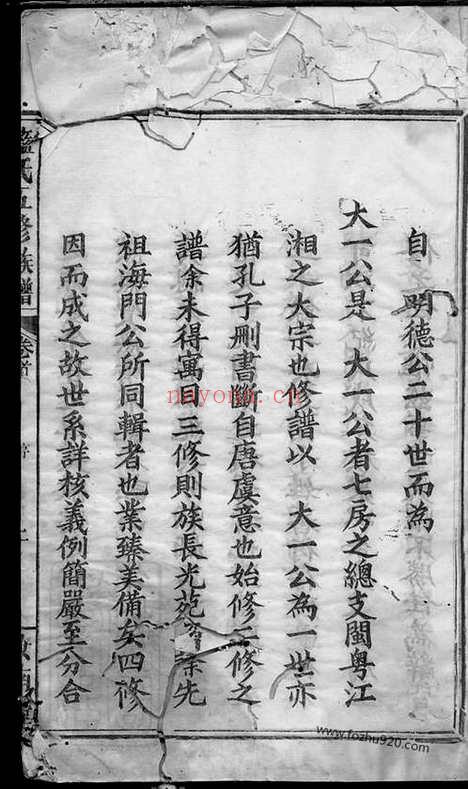 自 明德公二十世而為
大一公是 大一公者七房之總支閩粵江
湘之大宗也修譜以 大一公為一世亦
猶孔子刪書斷自唐虞意也始修二修之
譜余未得寓目三修則族長光苑余先
祖海門公所同輯者也業臻美備矣四修
因而成之故世系詳核義例簡嚴至分合
氏五修族譜 卷首
nayona.cn
www.fozhu920.com